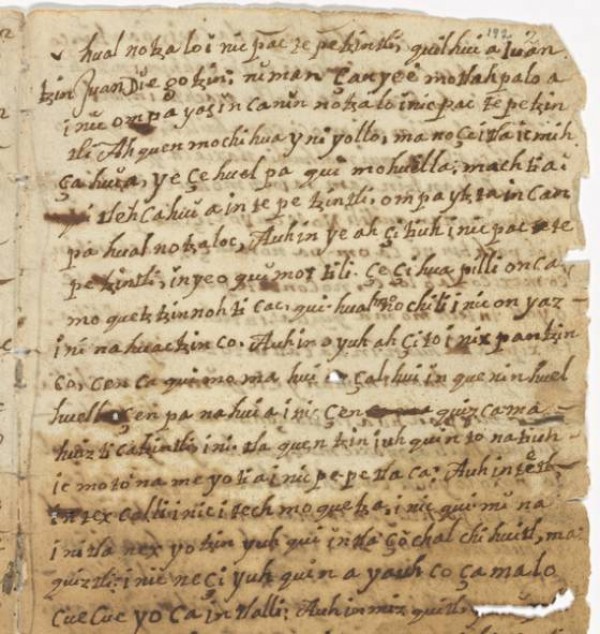 192
hual no tza lo i nic pac te pe tzintli, quil hui a Iuan
tzin Juan Die go tzin; ni man Çan yee mo tlah palo a
i nic om pa yaz in Canin no tza lo i nic pac te pe tzin
tli Ah quen mo chi hua y ni yollo, ma no çe i tla ic mih
Ça hui a, ye Çe huel pa qui mo huella, mach ti a;
tleh Ca hui a in te pe tzintli, om pa yt ta in Can
pa hual no tza loc, Auh in ye ah çi tiuh i nic pac te te
pe tzintli, in ye o qui mot tili. Çe Çi hua pilli on ca
mo quetz tzin noh ti cac, qui hual mo chili i nic on yaz
i ni na huac tzin co. Auh in o yuh ah Çi to i nix pan tzin
co, cen ca qui mo ma hui Çal hui in que nin huel
Çen pa na hui a i nic Çen quiz ca ma
huiz ti ca tzintli, i ni tla quen tzin iuh quin to na tiuh
ic mo to na me yo ti a i nic pe pe tla ca: Auh in tetl
in tex calli i nic i tech mo quetza, i nic qui mi na
i ni tla nex yo tzin yuh qui in tla Ço chal chi huitl, ma
quiztli i nic ne Çi yuh quin a yauh co Ça ma lo
Cue Cue yo Ca in tlalli: Auh in miz quitl